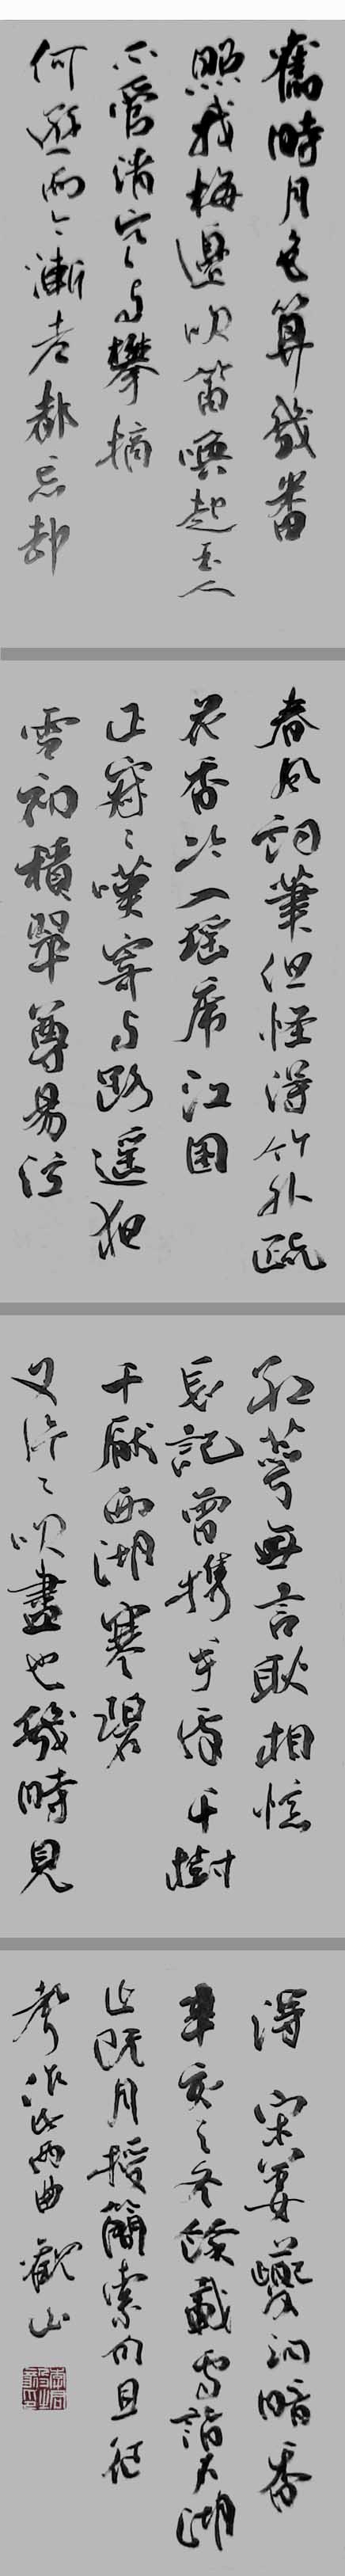 舊時月色算幾番
照我梅邊吹笛喚起玉人
不管清寒与攀摘
何遜而今漸老都忘却
春風詞筆但怪得竹外疏
花香冷入瑤席江國
正寂寂嘆寄与路遙夜
雪初積翠尊易泣
紅萼無言耿相憶
長記曾携手處千樹
壓西湖寒碧
又片片吹盡也幾時見
得 宋姜夔詞暗香
辛亥之冬餘載雪詣石湖
止既月授簡索句且征
聲作此兩曲 觀山